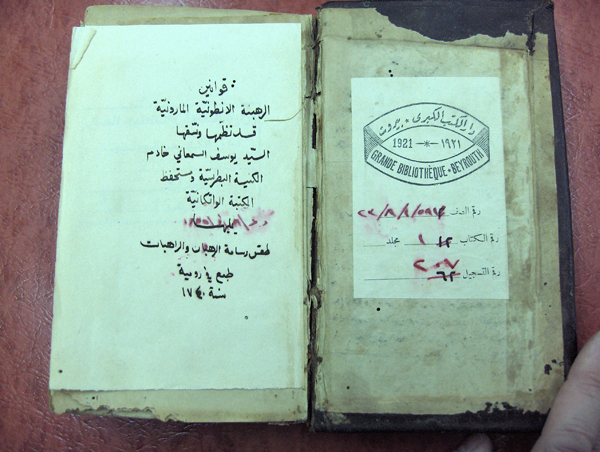 قوانين
الرهبنة الانطونيّة المارونيّة
قد نظّمها ونسّقها
السيّد يوسف السمعاني خادم
الكنيسة البطرسيّة ومستحفظ
الكتبة الواتكانيّة
يليها
طقس رسامة الرهبان والراهبات
طبع في رومية
سنة ١٧٤٠
دار الكتب الكبرى * بيروت
1921 —*— ١٩٢١
GRANDE BIBLIOTHÈQUE * BEYROUTH
رقم الصف
رقم الكتاب ١٢ مجلد ١
رقم التسجيل ٦٢
٢٠٧